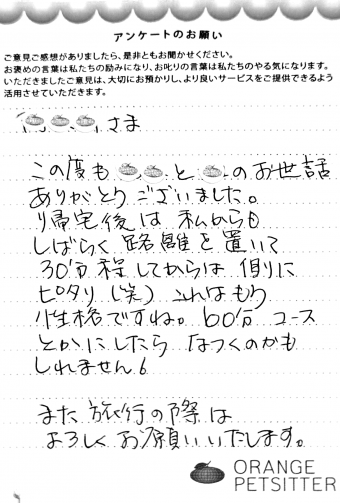 アンケートのお願い
ご意見ご感想がありましたら、是非ともお聞かせください。
お褒めの言葉は私たちの励みになり、お叱りの言葉は私たちのやる気になります。
いただきましたご意見は、大切にお預かりし、より良いサービスをご提供できるよう
活用させていただきます。
さま
この度も と のお世話
ありがとうございました。
帰宅後は 私からも
しばらく 距離を置いて
30分程してからは 側に
ピタリ (笑) これはもう
性格ですね。60分 コース
とかにしたら なつくのかも
しれません!
また 旅行の際は
よろしくお願いいたします。
ORANGE
PETSITTER